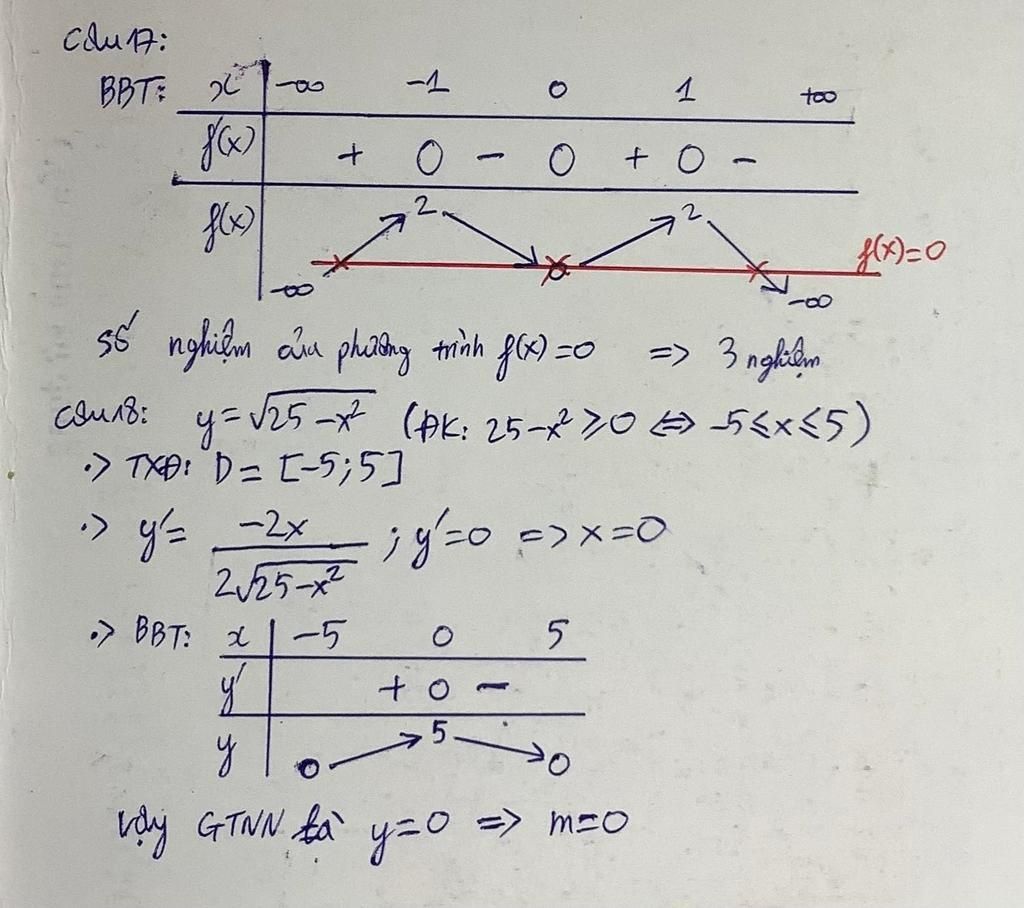 Câu 17:
BBT: x -∞ -1 0 1 +∞
f'(x) + 0 - 0 + 0 -
f(x) 2 2
f(x)=0
-∞ 0 -∞
Số nghiệm của phương trình f(x)=0 => 3 nghiệm
Câu 18: y=√25-x² (ĐK: 25-x²⩾0 <=> -5⩽x⩽5)
.> TXĐ: D = [-5;5]
.> y'= -2x / 2√25-x² ; y'=0 => x=0
.> BBT: x -5 0 5
y' + 0 -
y 0 5 0
Vậy GTNN là y=0 => m=0